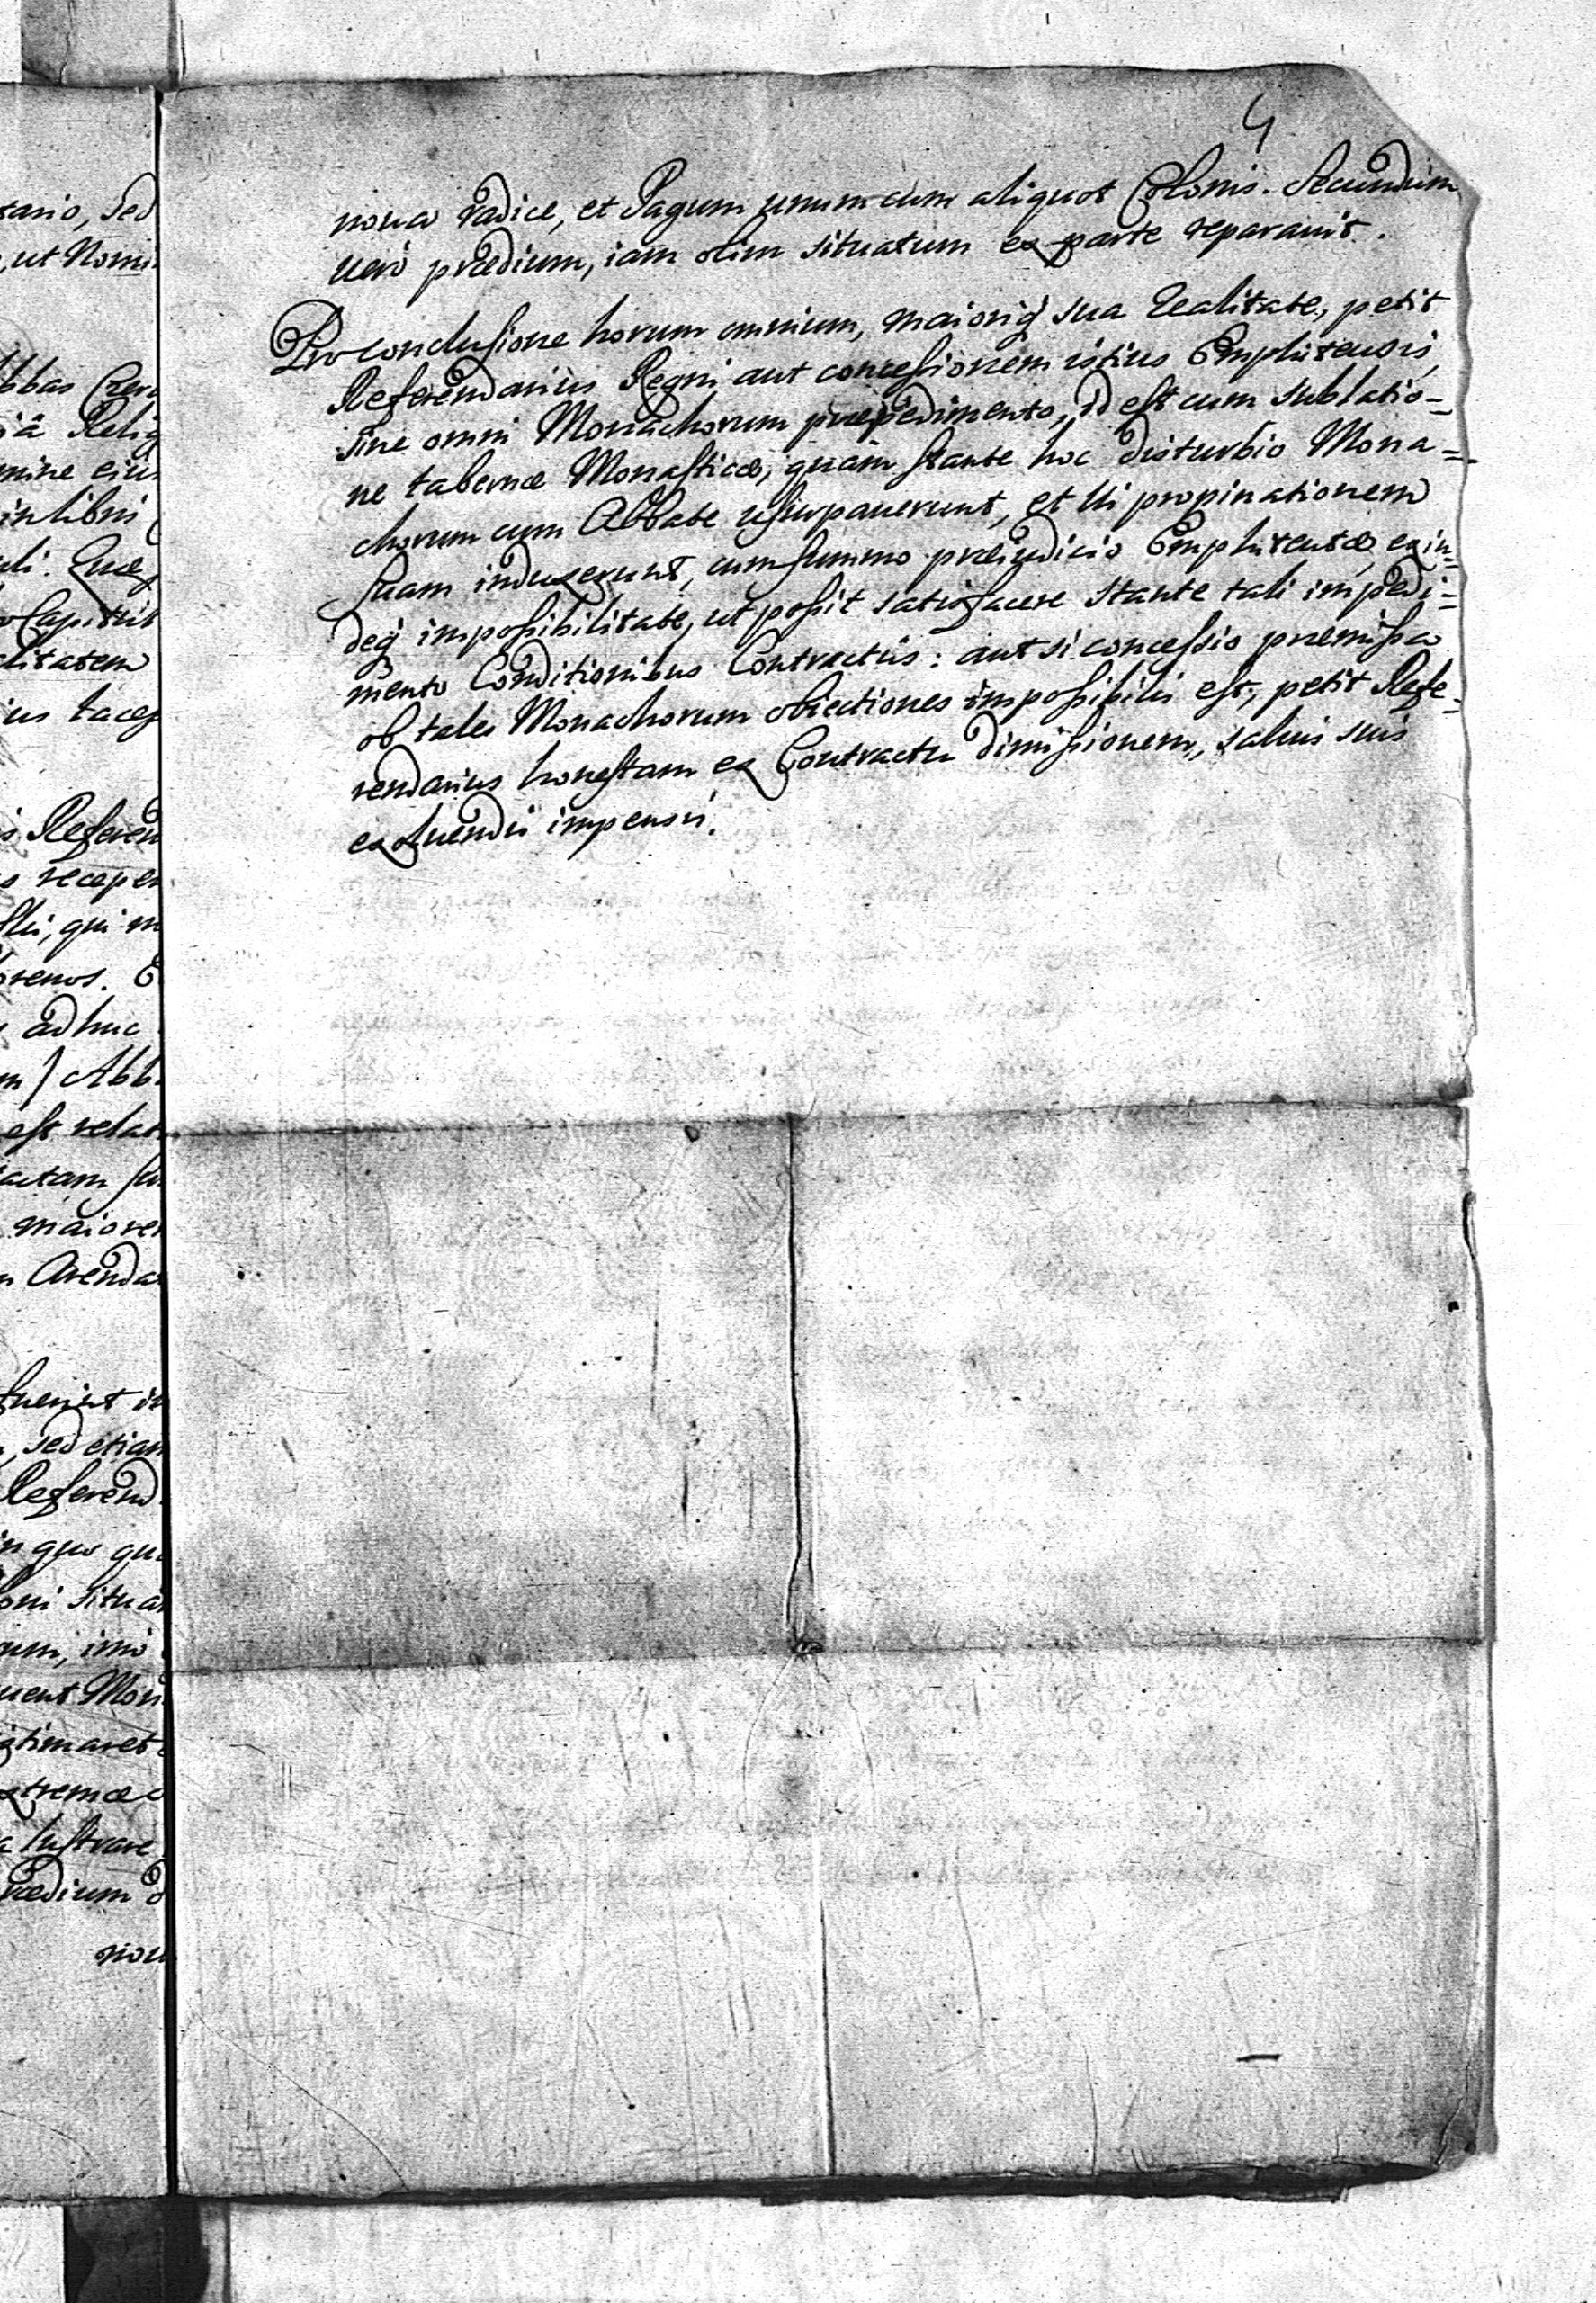 tario, sed
, ut Nomi
bbas Czer
iâ Relig
mine eius
in libri
uli. Quæ
Capitul
alitatem
ius taces
s Referen
recepe
qui in
renos. E
adhuc
m) Abb
est relat
actam su
maiore
n Arenda
fuerint in
, sed etiam
Referend
in quo qu
oni situa
um, imò
uent Mon
gtimaret
xtremæ
a lustrare
rædium d
nou
4
noua radice, et Pagum unum cum aliquot Colonis. Secundum
uerò prædium, iam olim situatum ex parte reparauit.
Pro conclusione horum omnium, maioriq̨ sua realitate, petit
Referendarius Regni aut concessionem istius Emphiteusis,
sine omni Monachorum præpedimento, id est cum sublatio-
ne tabernæ Monasticæ, quam stante hoc disturbio Mona=
chorum cum Abbate usurpauerunt, et ui propinationem
suam induxerunt, cum summo præiudicio Emphiteutæ, exin=
deq̨ impossibilitate, ut possit satisfacere stante tali impedi=
mento Conditionibus Contractûs: aut si concessio præmissa
ob tales Monachorum obiectiones impossibilis est, petit Refe=
rendarius honestam ex Contractu dimissionem, saluis suis
exoluendis impensis.